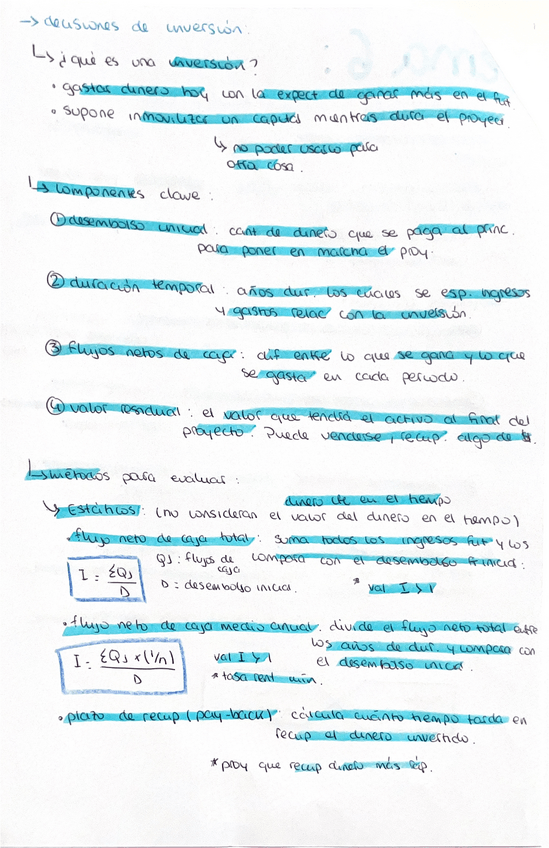 → decisiones de inversión:
↳ ¿qué es una inversión?
• gastar dinero hoy con la expect de ganar más en el fut
• supone inmovilizar un capital mientras dura el proyect.
↳ no poder usarlo para
otra cosa.
↳ componentes clave:
① desembolso inicial: cant de dinero que se paga al princ.
para poner en marcha el proy.
② duración temporal: años dur. los cuales se esp. ingresos
y gastos relac con la inversión.
③ flujos netos de caja: dif entre lo que se gana y lo que
se gasta en cada periodo.
④ valor residual: el valor que tendrá el activo al final del
proyecto. Puede venderse, recup. algo de
↳ métodos para evaluar:
dinero cte en el tiempo
↳ Estáticos: (no consideran el valor del dinero en el tiempo)
• flujo neto de caja total: suma todos los ingresos fut y los
QJ: flujos de caja compara con el desembolso inicial:
I = ΣQJ / D D = desembolso inicial. * val I > 1
• flujo neto de caja medio anual: divide el flujo neto total entre
los años de dur. y compara con
I = ΣQJ x (1/n) / D val I > 1 el desembolso inicial.
* tasa rent min.
• plazo de recup (pay-back): calcula cuánto tiempo tarda en
recup el dinero invertido.
* proy que recup dinero más ráp.